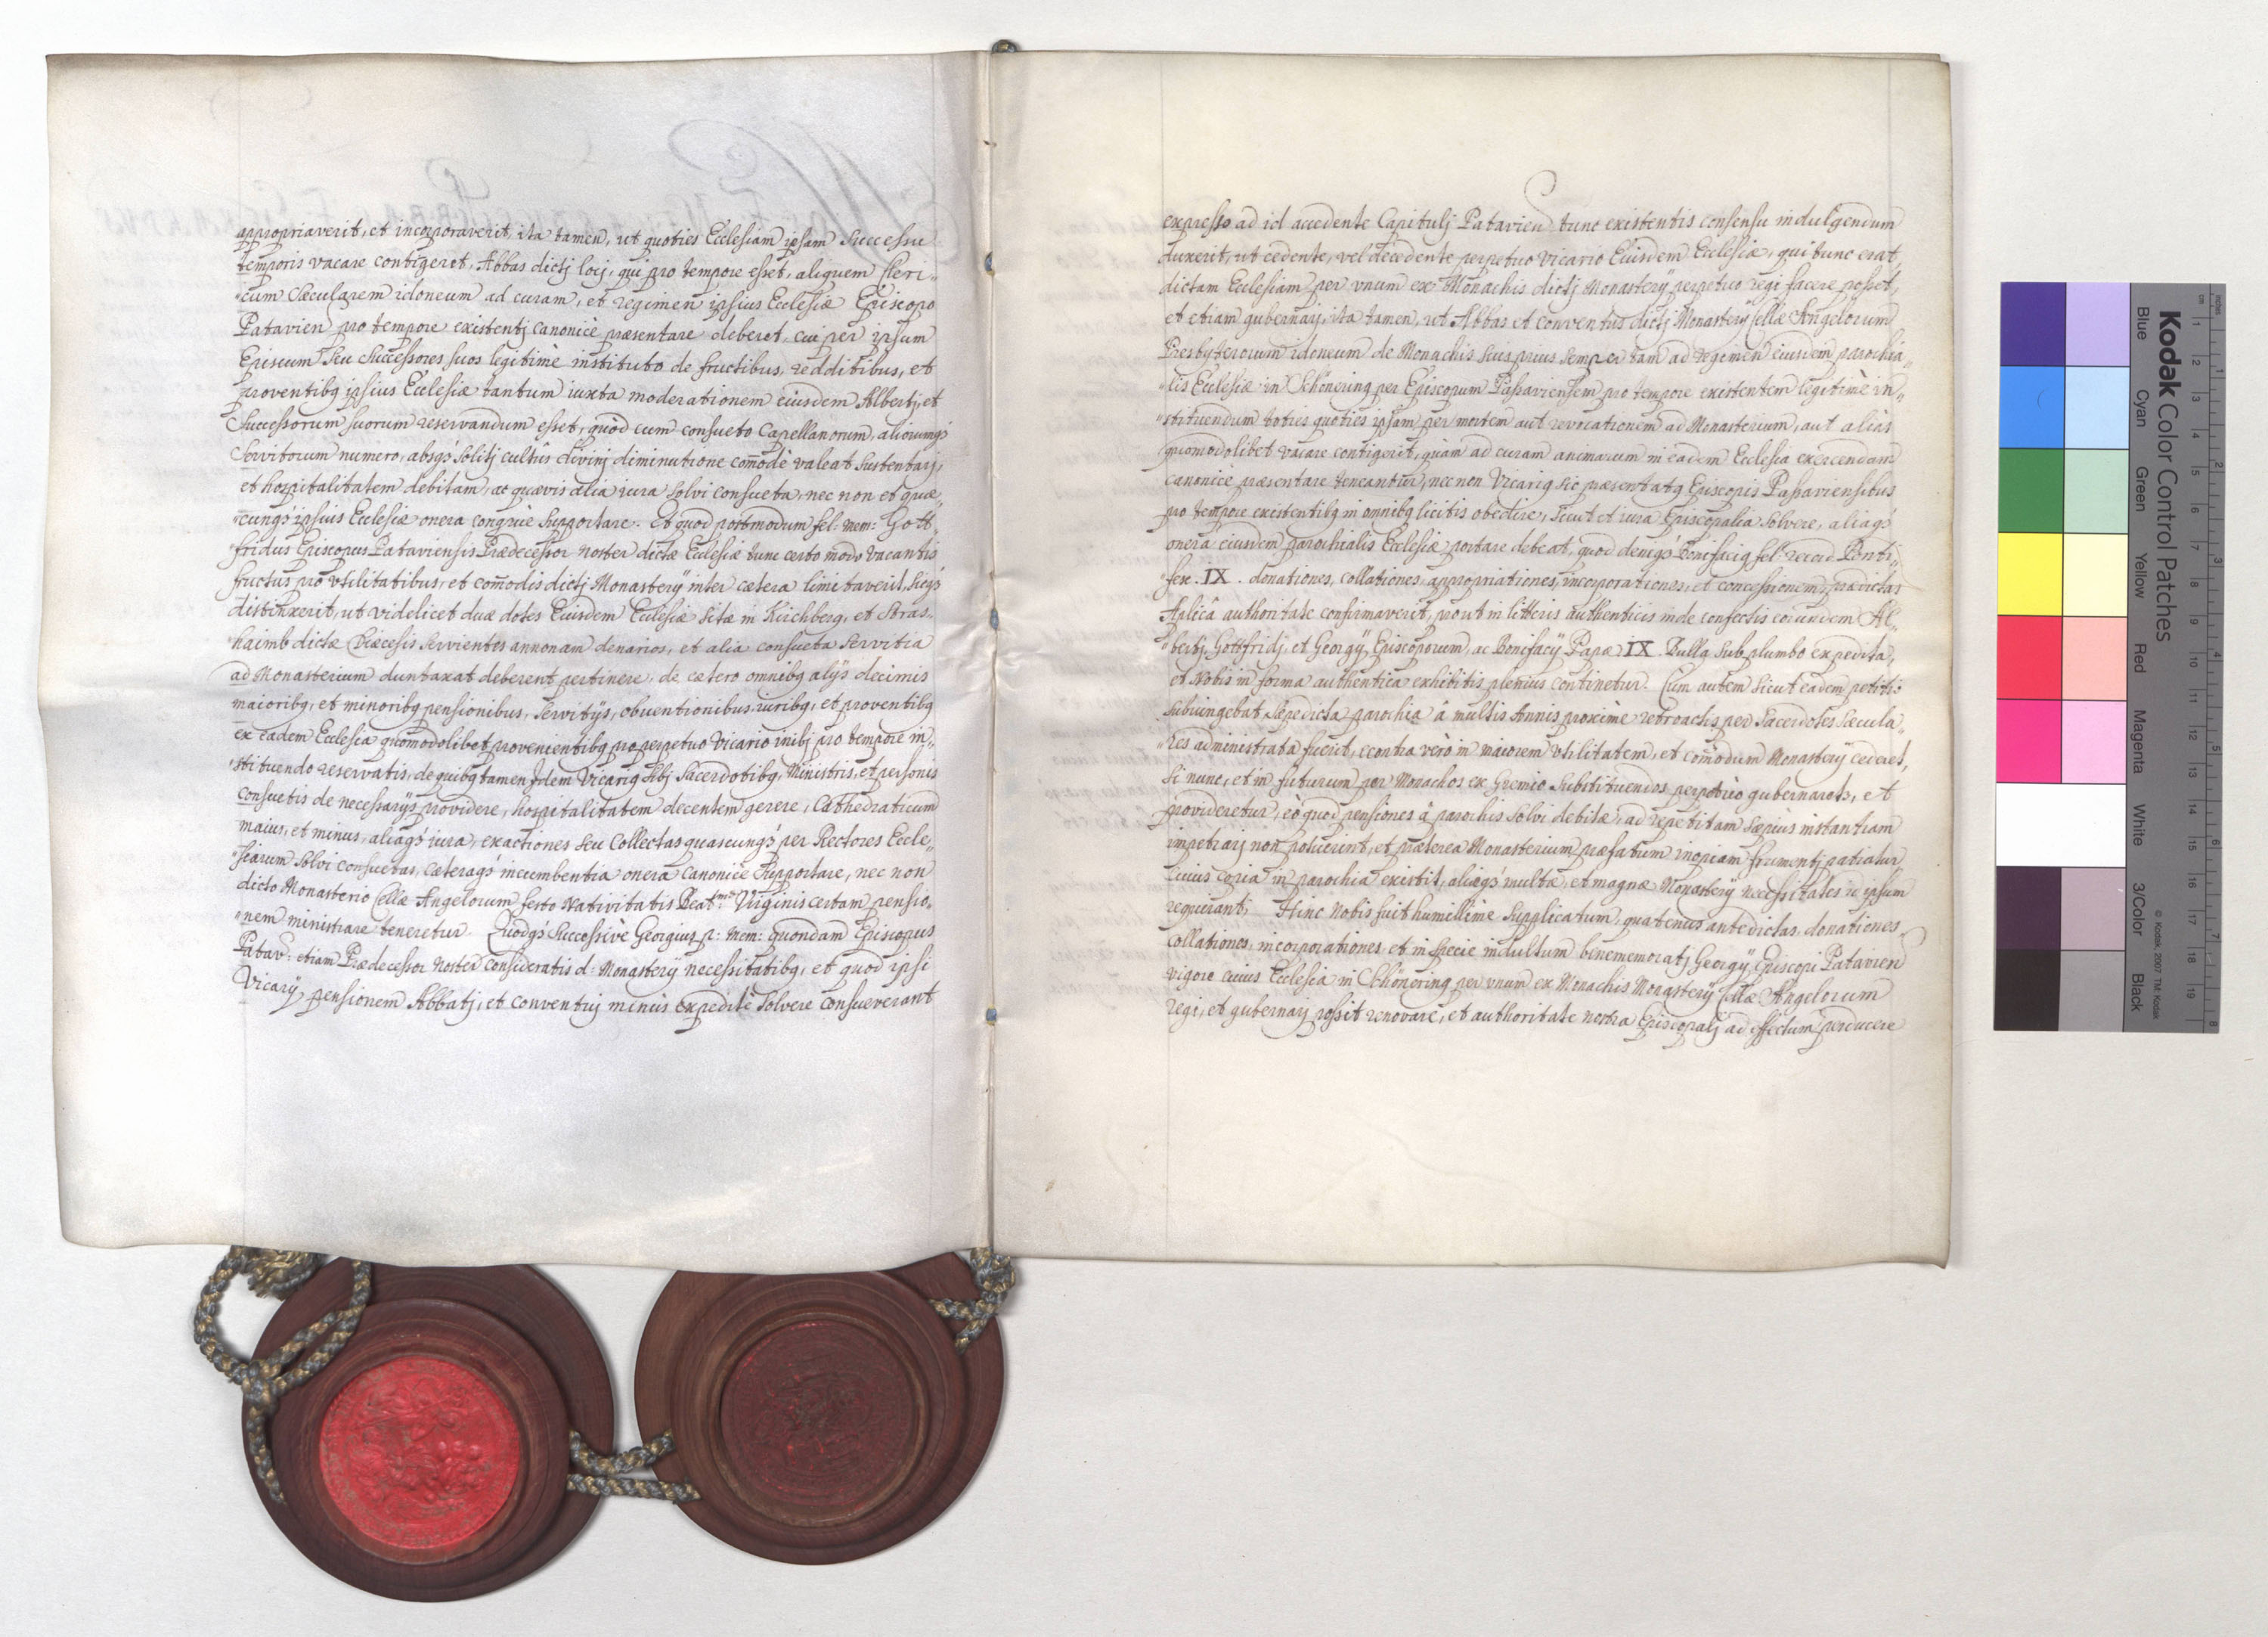 appropriaverit, et incorporaverit, ita tamen, ut quoties Ecclesiam ipsam Successu
temporis vacare contigeret, Abbas dictj locj, qui pro tempore esset, aliquem Cleri„
„cum Sæcularem idoneum ad curam, et regimen ipsius Ecclesiæ Episcopo
Patavien pro tempore existentj canonicè præsentare deberet, cui per ipsum
Episcum Seu Successores suos legitimè instituto de fructibus, redditibus, et
proventibq ipsius Ecclesiæ tantum iuxta moderationem eiusdem Albertj, et
Successorum suorum reservandum esset, quòd cum consueto Capellanorum, aliorumqʒ
Servitorum numero, absqʒ solitj cultûs divinj diminutione com̃odè valeat sustentarj,
et hospitalitatem debitam, ac quævis alia iura solvi consueta, nec non et quæ„
„cunqʒ ipsius Ecclesiæ onera congruè supportare. Et quod postmodum fel: mem: Gott„
„fridus Episcopus Pataviensis Prædecessor noster dictæ Ecclesiæ tunc certo modo vacantis
fructus pro vtilitatibus, et com̃odis dictj Monasterÿ inter cætera limitaverit, sicqʒ
distinxerit, ut videlicet duæ dotes Eiusdem Ecclesiæ sitæ in Kirchberg, et Stras„
„haimb dictæ Diæcesis servientes annonam denarios, et alia consueta servitia
ad Monasterium duntaxat deberent pertinere, de cætero omnibq alÿs decimis
maioribq, et minoribq pensionibus, servitÿs, obuentionibus, iuribq, et proventibq
ex eadem Ecclesia quomodolibet provenientibq pro perpetuo Vicario inibj pro tempore in„
„stituendo reservatis, de quibq tamen Idem Vicariq sibj Sacerdotibq, Ministris, et personis
consuetis de necessarÿs providere, hospitalitatem decentem gerere, Cathedraticum
maius, et minus, aliaqʒ iura, exactiones seu Collectas quascunqʒ per Rectores Eccle„
„siarum solvi consuetas, cæteraqʒ incumbentia onera canonicè supportare, nec non
dicto Monasterio Cellæ Angelorum festo Nativitatis Beatmæ Virginis certam pensio„
„nem ministrare teneretur. Quodqʒ Successivè Georgius p: mem: quondam Episcopus
Patav: etiam Prædecessor noster consideratis d: Monasterÿ necessitatibq, et quod ipsi
Vicarÿ pensionem Abbatj, et Conventuj minùs expeditè solvere consueverant
expresso ad id accedente Capitulj Patavien tunc existentis consensu indulgendum
duxerit, ut cedente, vel decedente perpetuo Vicario Eiusdem Ecclesiæ, qui tunc erat,
dictam Ecclesiam per vnum ex Monachis dictj Monasterÿ perpetuo regi facere posset,
et etiam gubernarj, ita tamen, ut Abbas et conventus dictj Monasterÿ Cellæ Angelorum
Presbyterorum idoneum de Monachis suis prius semper tam ad regimen eiusdem parochia„
„lis Ecclesiæ in Schönering per Episcopum Passaviensem pro tempore existentem legitimè in„
„stituendum toties quoties ipsam per mortem aut revocationem ad Monasterium, aut aliàs
quomodolibet vacare contigerit, quàm ad curam animarum in eadem Ecclesia exercendam
canonicè præsentare teneantur, nec non Vicariq sic præsentatq Episcopis Passaviensibus
pro tempore existentibq in omnibq licitis obedire, sicut et iura Episcopalia solvere, aliaqʒ
onera eiusdem parochialis Ecclesiæ portare debeat, quod deniqʒ Bonifaciq fel: record: Ponti„
„fex. IX. donationes, collationes, appropriationes, incorporationes, et concessionem prædictas
Aplicâ authoritate confirmaverit, prout in litteris authenticis inde confectis eorundem Al„
„bertj, Gottfridj, et Georgÿ, Episcoporum, ac Bonifacÿ Papæ IX. Bulla sub plumbo expedita,
et Nobis in forma authentica exhibitis plenius continetur. Cum autem sicut eadem petitio
subiungebat, sæpedicta parochia â multis Annis proximè retroactis per Sacerdotes Sæcula„
„res administrata fuerit, econtra verò in maiorem vtilitatem, et com̃odum Monasterÿ cederet,
si nunc, et in futurum per Monachos ex Gremio substituendos perpetuò gubernaretur, et
provideretur, eò quod pensiones â parochis solvi debitæ, ad repetitam sæpius instantiam
impetrarj non potuerint, et præterea Monasterium præfatum inopiam frumentj patiatur,
cuius copia in parochia existit, aliæqʒ multæ, et magnæ Monasterÿ necessitates id ipsum
requirant, Hinc Nobis fuit humillimè supplicatum, quatenus antedictas, donationes,
collationes, incorporationes, et in specie indultum binememoratj Georgÿ Episcopi Patavien
vigore cuius Ecclesia in Schönering per vnum ex Monachis Monasterÿ Cellæ Angelorum
regi, et gubernarj possit renovare, et authoritate nostra Episcopalj ad effectum perducere
Kodak Color Control Patches
Blue Cyan Green Yellow Red Magenta White 3/Color Black
© Kodak, 2007 TM: Kodak